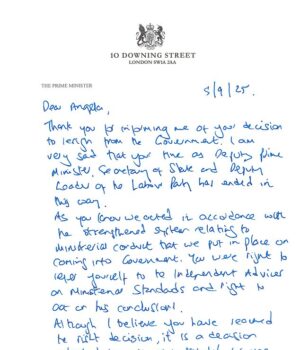 10 DOWNING STREET
LONDON SW1A 2AA
THE PRIME MINISTER
5/9/25.
Dear Angela,
Thank you for informing me of your decision
to resign from the Government. I am
very sad that your time as Deputy Prime
Minister, Secretary of State and Deputy
Leader of the Labour Party has ended in
this way.
As you know we acted in accordance with
the strengthened system relating to
ministerial conduct that we put in place on
coming into Government. You were right to
refer yourself to the Independent Adviser
on Ministerial Standards and right to
act on his conclusion.
Although I believe you have reached
the right decision, it is a decision